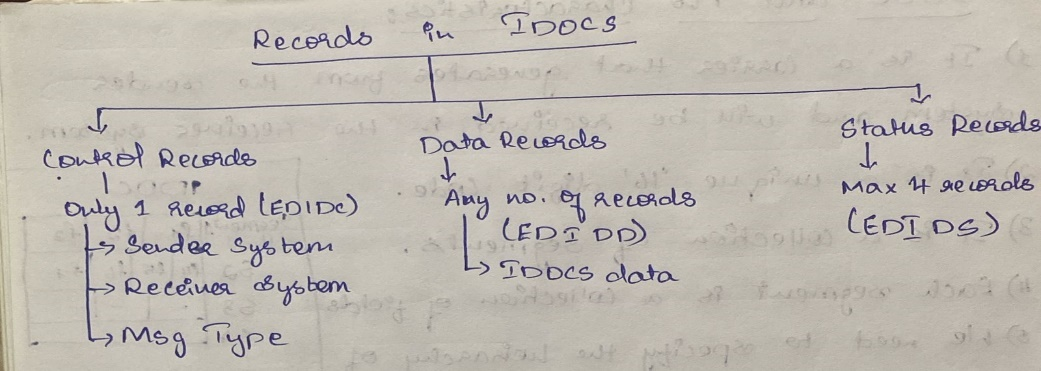 Records in IDOCS
Control Records
Only 1 record (EDIDC)
Sender System
Receiver System
Msg Type
Data Records
Any no. of records
(EDIDD)
IDOCS data
Status Records
Max 4 records
(EDIDS)